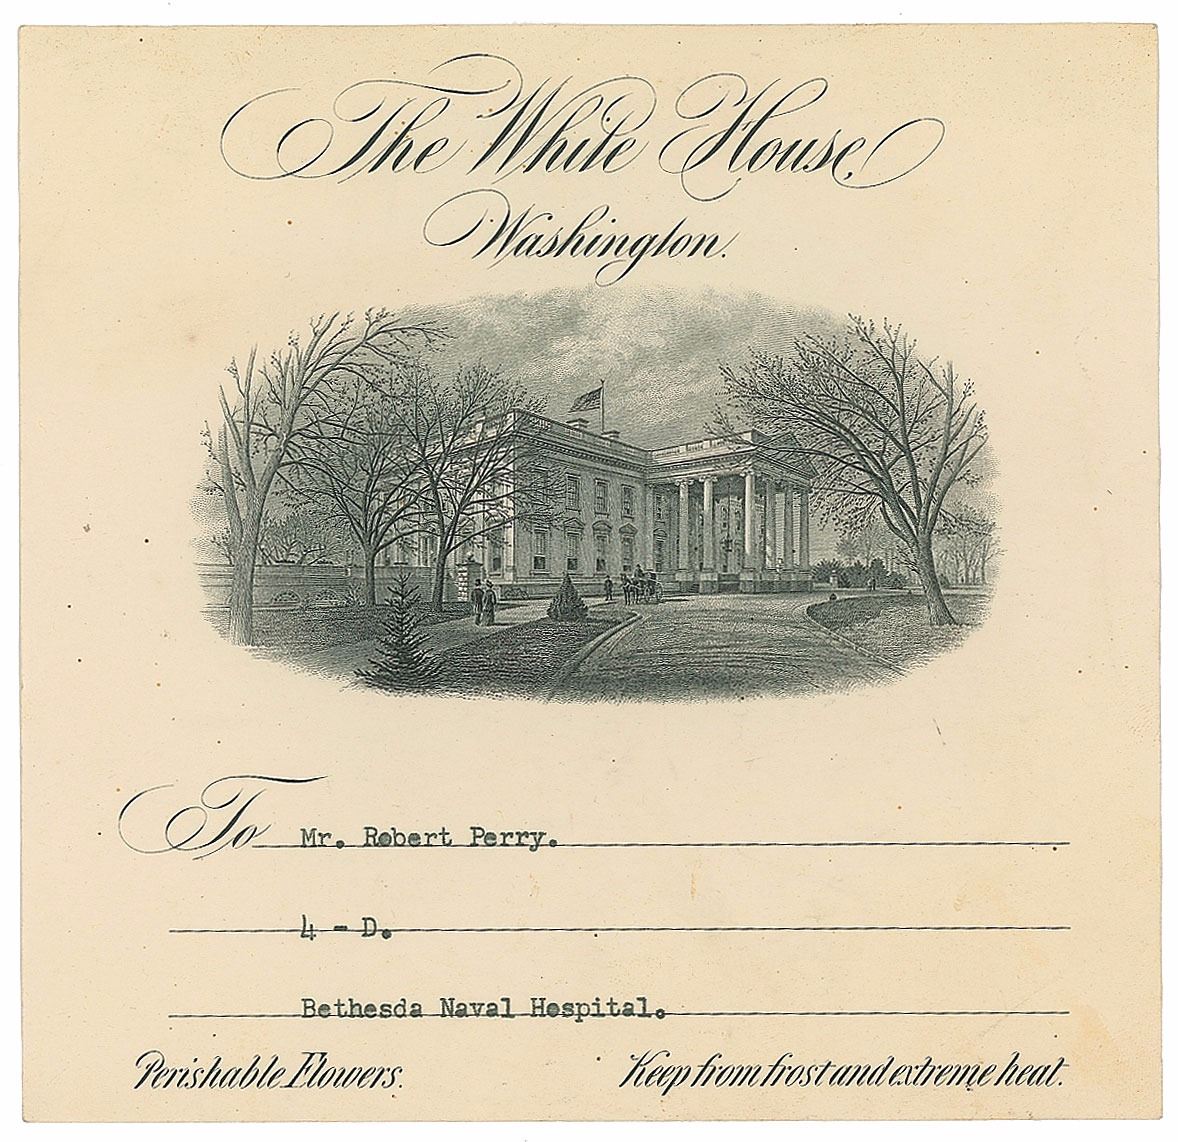 The White House,
Washington.
To Mr. Robert Perry.
4 - D.
Bethesda Naval Hospital.
Perishable Flowers. Keep from frost and extreme heat.